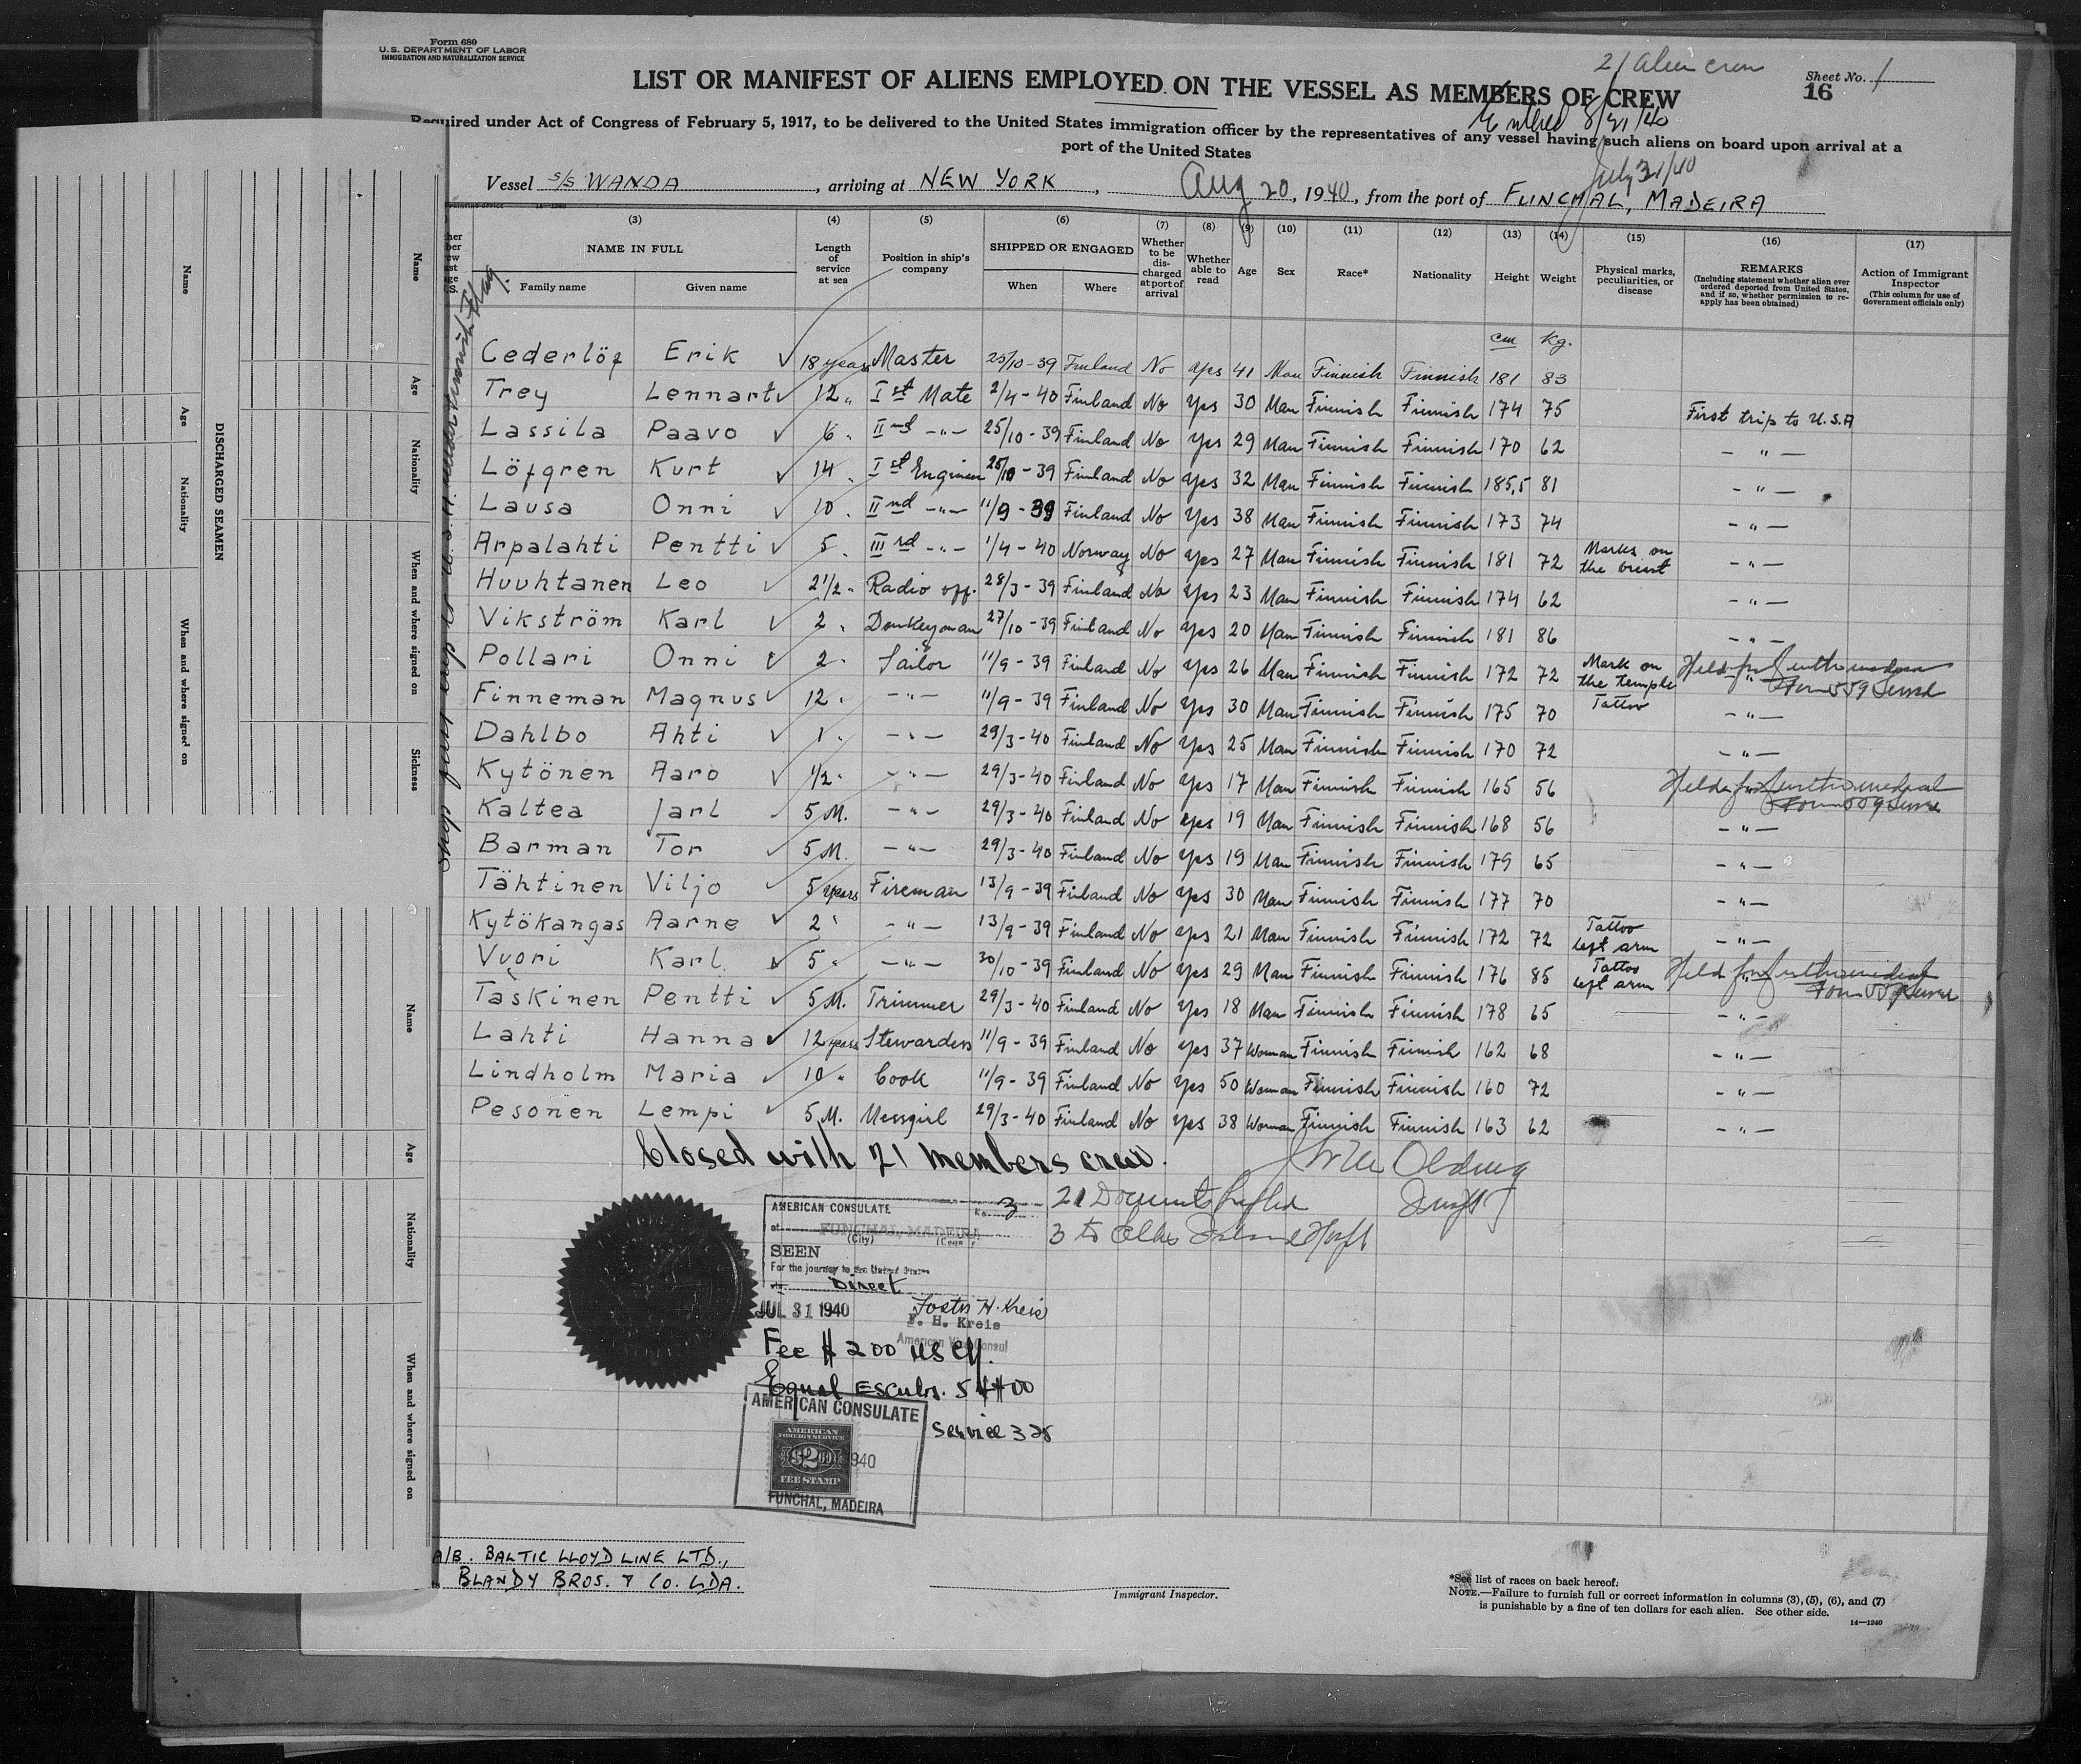 Form 680
U.S. DEPARTMENT OF LABOR
IMMIGRATION AND NATURALIZATION SERVICE
21 alien crew
Sheet No. 1
16
LIST OR MANIFEST OF ALIENS EMPLOYED ON THE VESSEL AS MEMBERS OF CREW
8/21/40
Required under Act of Congress of February 5, 1917, to be delivered to the United States immigration officer by the representatives of any vessel having such aliens on board upon arrival at a
port of the United States
July 31/40
Vessel S/S WANDA, arriving at NEW YORK, Aug 20, 1940, from the port of FUNCHAL, MADEIRA
(3) (4) (5) (6) (7) (8) (9) (10) (11) (12) (13) (14) (15) (16) (17)
NAME IN FULL Family name Given name
Length of service at sea
Position in ship's company
SHIPPED OR ENGAGED When Where
Whether to be discharged at port of arrival
Whether able to read
Age Sex Race* Nationality Height Weight
Physical marks, peculiarities, or disease
REMARKS (Including statement whether alien ever ordered deported from United States, and if so, whether permission to reapply has been obtained)
Action of Immigrant Inspector (This column for use of Government officials only)
cm kg.
Cederlöf Erik 18 years Master 25/10-39 Finland No yes 41 Man Finnish Finnish 181 83
Trey Lennart 12 " Ist Mate 2/4-40 Finland No yes 30 Man Finnish Finnish 174 75 First trip to U.S.A
Lassila Paavo 6 " IInd -"- 25/10-39 Finland No yes 29 Man Finnish Finnish 170 62 -"-
Löfgren Kurt 14 " Ist Engineer 25/10-39 Finland No yes 32 Man Finnish Finnish 185,5 81 -"-
Lausa Onni 10 " IInd -"- 11/9-39 Finland No yes 38 Man Finnish Finnish 173 74 -"-
Arpalahti Pentti 5 " IIIrd -"- 1/4-40 Norway No yes 27 Man Finnish Finnish 181 72 Marks on the -"-
Huuhtanen Leo 2 1/2 " Radio off. 28/3-39 Finland No yes 23 Man Finnish Finnish 174 62 -"-
Vikström Karl 2 " Donkeyman 27/10-39 Finland No yes 20 Man Finnish Finnish 181 86 -"-
Pollari Onni 2 " Sailor 11/9-39 Finland No yes 26 Man Finnish Finnish 172 72 Mark on the temple -"- Held for further medical Form 559 served
Finneman Magnus 12 " -"- 11/9-39 Finland No yes 30 Man Finnish Finnish 175 70 Tattoo -"-
Dahlbo Ahti 1 " -"- 29/3-40 Finland No yes 25 Man Finnish Finnish 170 72 -"-
Kytönen Aaro 1/2 " -"- 29/3-40 Finland No yes 17 Man Finnish Finnish 165 56 -"- Held for further medical Form 559 served
Kaltea Jarl 5 M. -"- 29/3-40 Finland No yes 19 Man Finnish Finnish 168 56 -"-
Barman Tor 5 M. -"- 29/3-40 Finland No yes 19 Man Finnish Finnish 179 65 -"-
Tähtinen Viljo 5 years Fireman 13/9-39 Finland No yes 30 Man Finnish Finnish 177 70 -"-
Kytökangas Aarne 2 " -"- 13/9-39 Finland No yes 21 Man Finnish Finnish 172 72 Tattoo left arm -"-
Vuori Karl 5 " -"- 30/10-39 Finland No yes 29 Man Finnish Finnish 176 85 Tattoo left arm -"- Held for further medical Form 559 served
Taskinen Pentti 5 M. Trimmer 29/3-40 Finland No yes 18 Man Finnish Finnish 178 65 -"-
Lahti Hanna 12 years Stewardess 11/9-39 Finland No yes 37 Woman Finnish Finnish 162 68 -"-
Lindholm Maria 10 " Cook 11/9-39 Finland No yes 50 Woman Finnish Finnish 160 72 -"-
Pesonen Lempi 5 M. Messgirl 29/3-40 Finland No yes 38 Woman Finnish Finnish 163 62 -"-
Closed with 21 members crew.
21 Documents
3 to Ellis Island
AMERICAN CONSULATE No. 3
at FUNCHAL, MADEIRA
(City) (Country)
SEEN
For the journey to the United States
via Direct
JUL 31 1940
Foster H. Kreis
F. H. Kreis
American Vice Consul
Fee $ 200 US Cy.
Equal Escudos. 54$00
Service 325
AMERICAN CONSULATE
AMERICAN
FOREIGN SERVICE
$2.00
FEE STAMP
1940
FUNCHAL, MADEIRA
A/B. BALTIC LLOYD LINE LTD.,
BLANDY BROS. & CO. LDA.
Immigrant Inspector.
*See list of races on back hereof.
NOTE.—Failure to furnish full or correct information in columns (3), (5), (6), and (7)
is punishable by a fine of ten dollars for each alien. See other side.
14—1240
DISCHARGED SEAMEN
Name Age Nationality When and where signed on Sickness
Name Age Nationality When and where signed on
Name Age Nationality When and where signed on